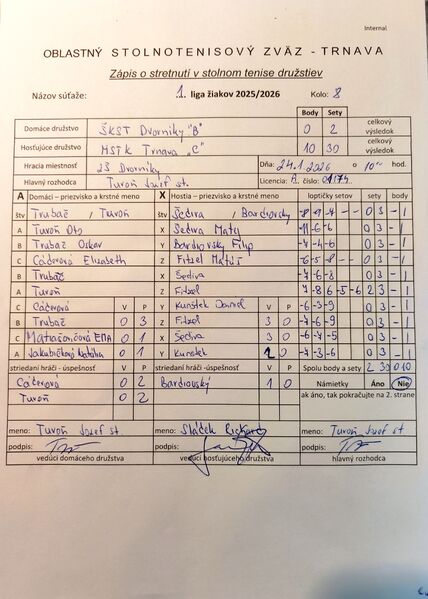 Internal
OBLASTNÝ STOLNOTENISOVÝ ZVÄZ - TRNAVA
Zápis o stretnutí v stolnom tenise družstiev
Názov súťaže: 1. liga žiakov 2025/2026 Kolo: 8
Body Sety
Domáce družstvo ŠKST Dvorníky "B" 0 2 celkový výsledok
Hosťujúce družstvo MSTK Trnava "C" 10 30 celkový výsledok
Hracia miestnosť ZŠ Dvorníky Dňa: 24.1.2026 o 10 hod.
Hlavný rozhodca Turoň Jozef st. Licencia: A číslo:
A Domáci - priezvisko a krstné meno X Hostia - priezvisko a krstné meno loptičky setov sety body
štv Trubač / Turoň štv Šedivá / Bardiovský -8 -9 -4 - - 0 3 - 1
A Turoň Oto X Šedivá -11 -6 -6 0 3 - 1
B Trubač Oskar Y Bardiovský Filip -4 -4 -6 0 3 - 1
C Cáderová Elizabeth Z Fitzel Matúš -6 -5 -8 - - 0 3 - 1
B Trubač X Šedivá -7 -6 -3 0 3 - 1
A Turoň Z Fitzel 7 -8 6 -5 -6 2 3 - 1
C Cáderová Y Kunštek Daniel -6 -3 -9 0 3 - 1
B Trubač 0 3 Z Fitzel 3 0 -7 -6 -9 0 3 - 1
C EMA 0 1 X Šedivá 3 0 -6 -7 -5 0 3 - 1
A Jakubíčková Natália 0 1 Y Kunštek 0 -7 -3 -6 0 3 - 1
striedaní hráči - úspešnosť V P striedaní hráči - úspešnosť V P Spolu body a sety 2 30 0 10
Cáderová 0 2 Bardiovský 1 0 Námietky Áno Nie
Turoň 0 2 ak áno, tak pokračujte na 2. strane
meno: Turoň Jozef st. meno: Sláček Richard meno: Turoň Jozef st.
podpis: podpis: podpis:
vedúci domáceho družstva vedúci hosťujúceho družstva hlavný rozhodca